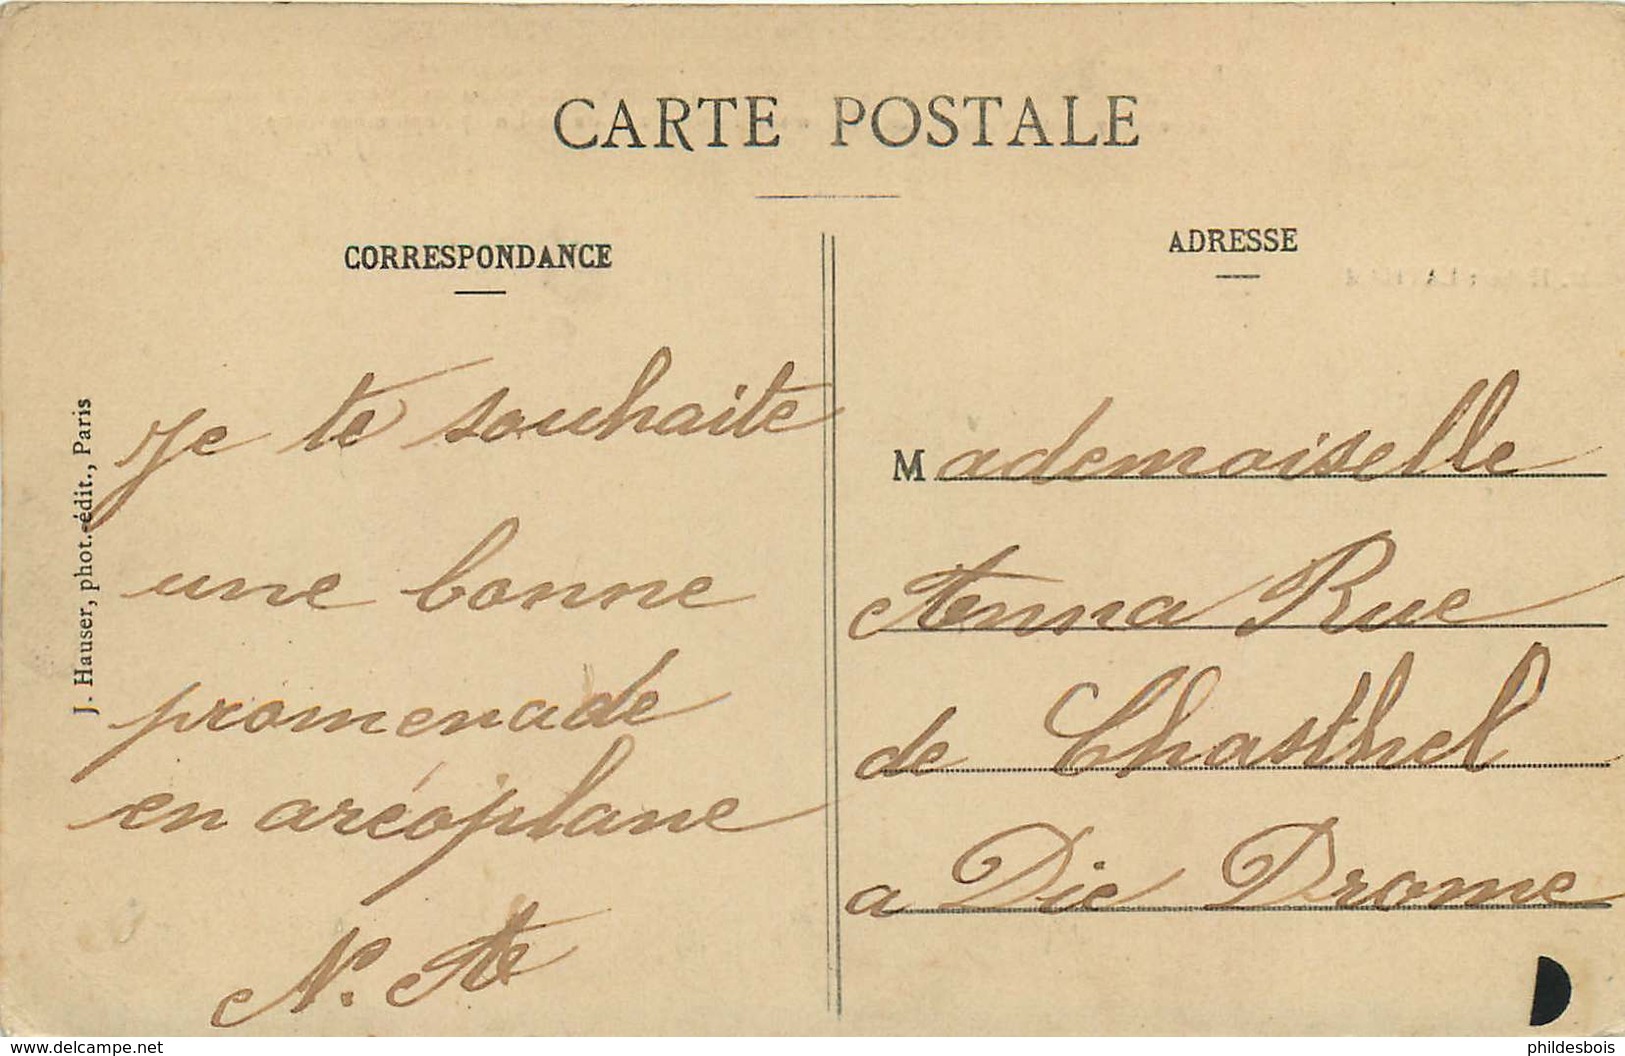 CARTE POSTALE
CORRESPONDANCE
Je te souhaite
une bonne
promenade
en aréoplane
N. A
ADRESSE
Mademoiselle
Anna Rue
de Chasthel
a Die Drome
J. Hauser, phot.-édit., Paris
www.delcampe.net
phildesbois